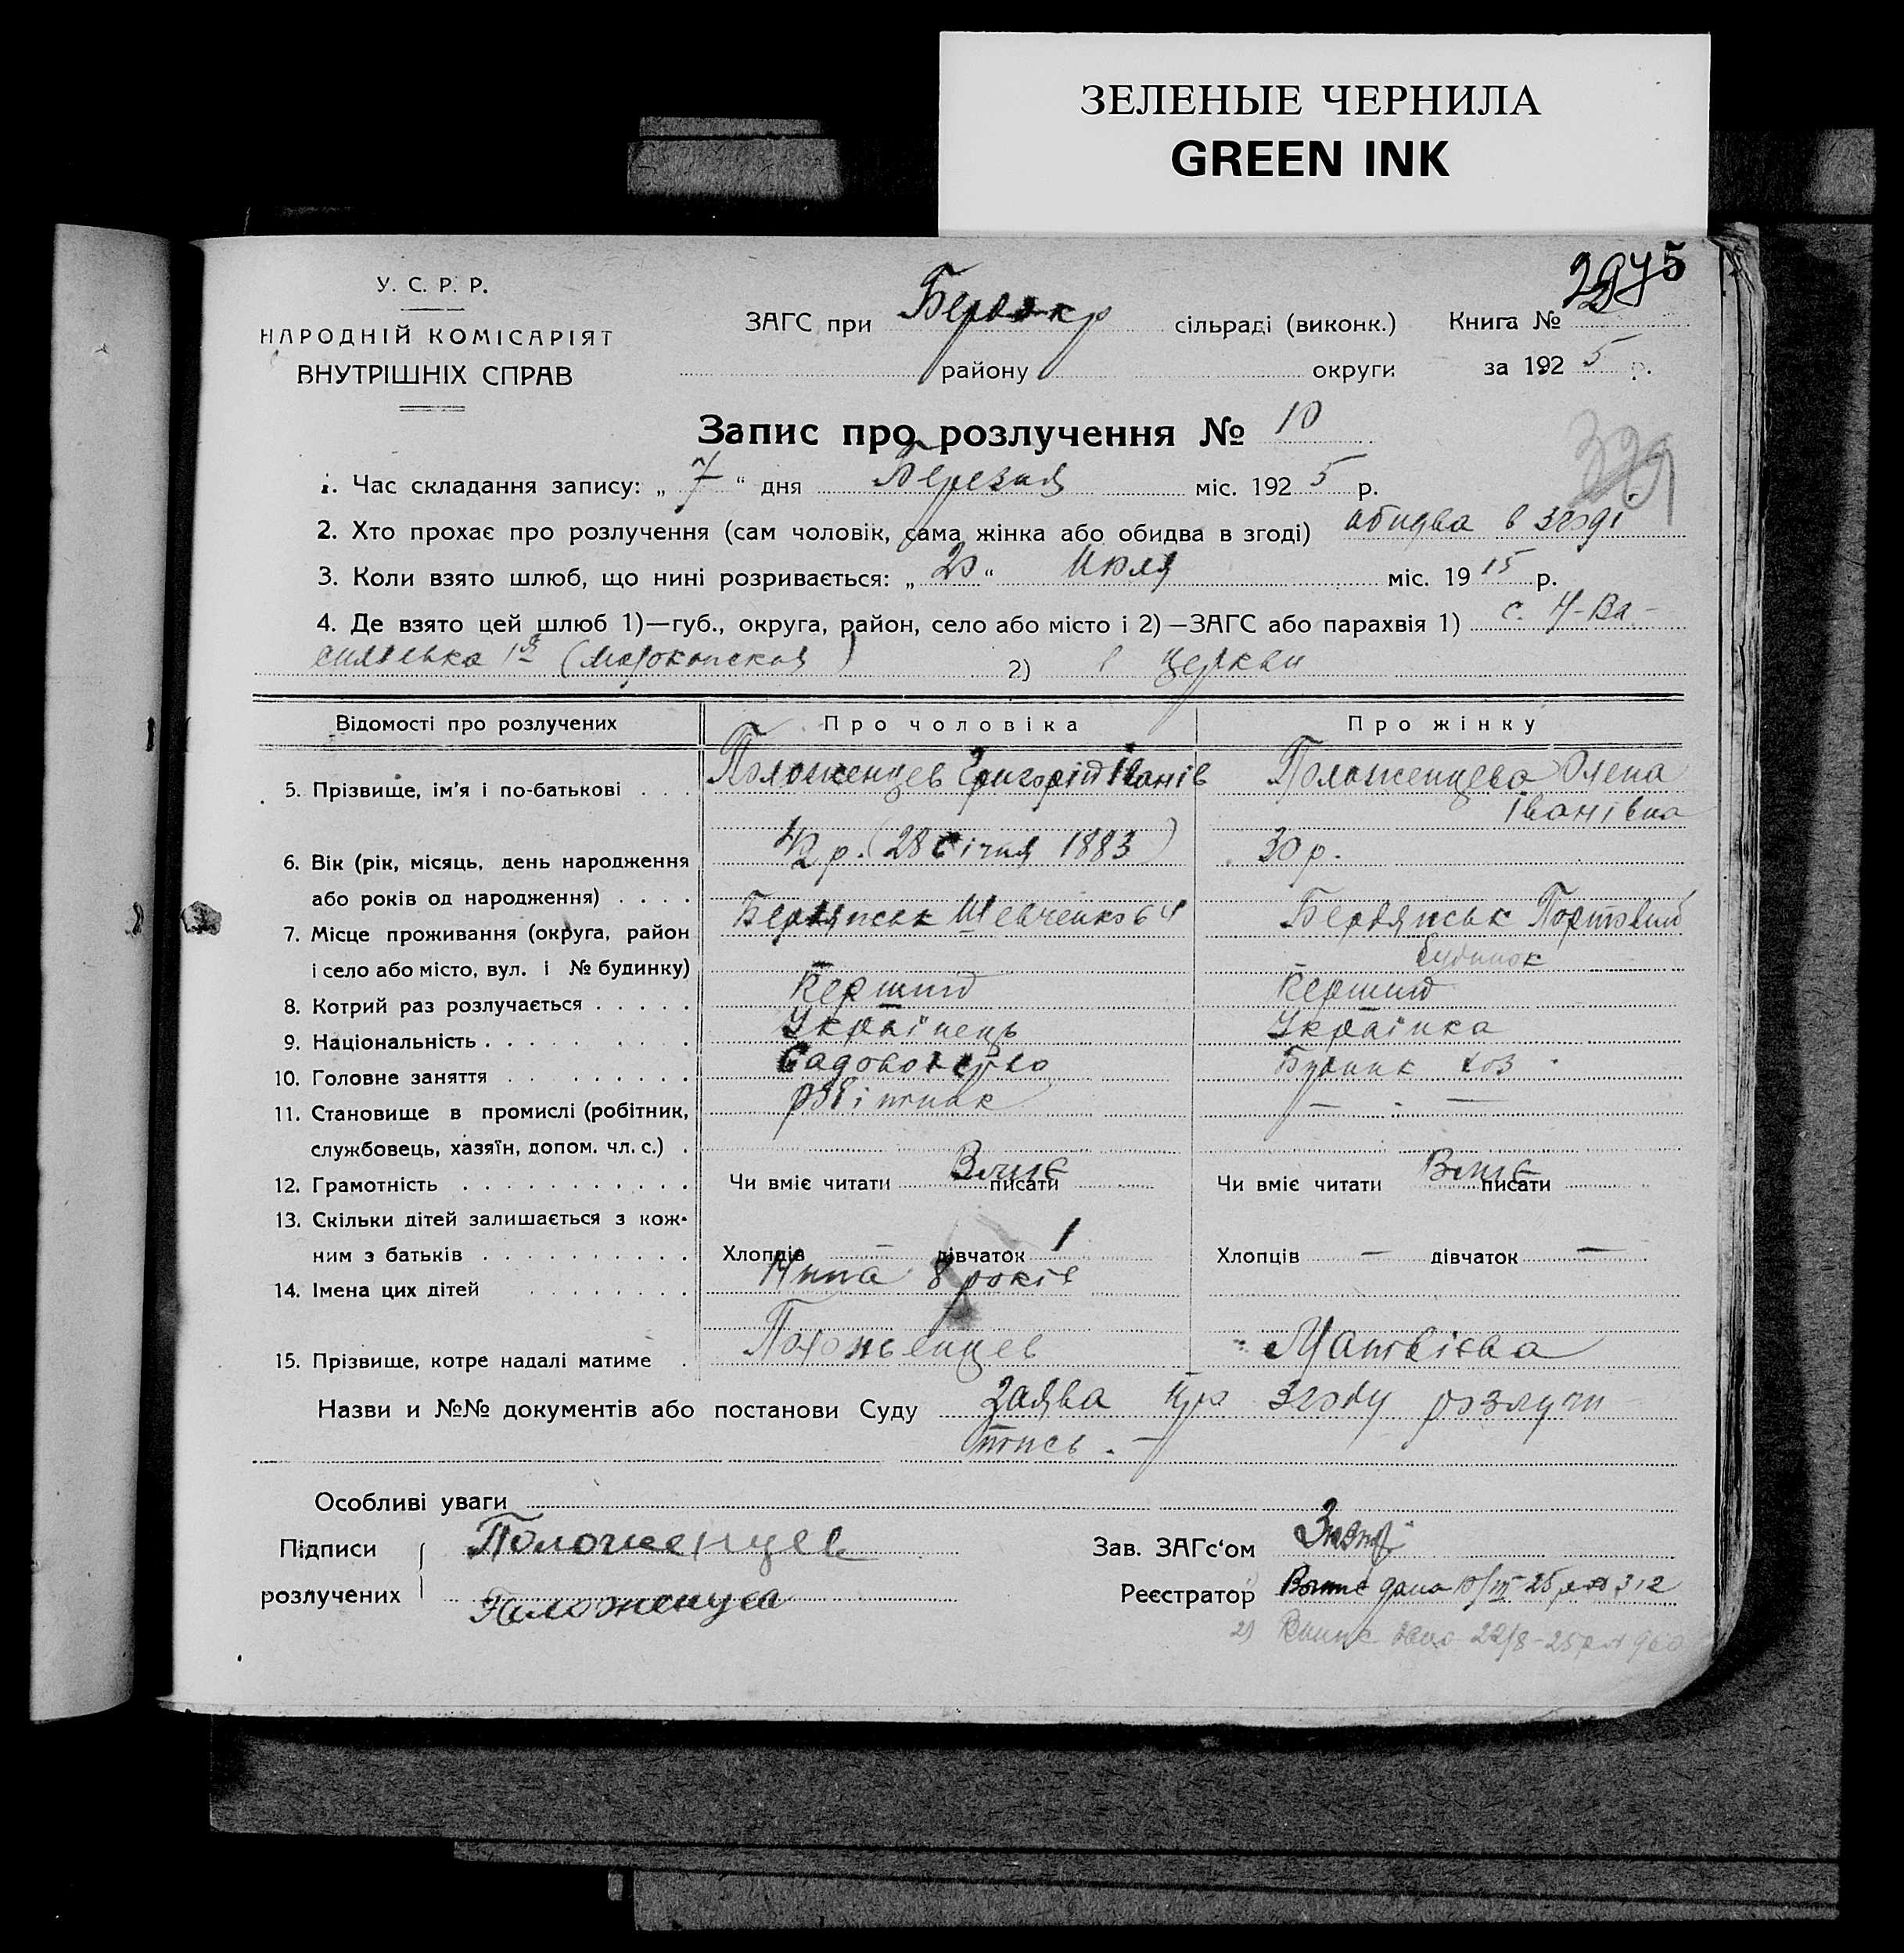 ЗЕЛЕНЫЕ ЧЕРНИЛА
GREEN INK
5
У. С. Р. Р.
НАРОДНІЙ КОМІСАРІЯТ
ВНУТРІШНІХ СПРАВ
ЗАГС при сільраді (виконк.) Книга №
району округи за 192 5 р.
Запис про розлучення № 10
1. Час складання запису: „ 7 “ дня Березня міс. 192 5 р.
2. Хто прохає про розлучення (сам чоловік, сама жінка або обидва в згоді) обидва в згоді
3. Коли взято шлюб, що нині розривається: „ 20 “ Июля міс. 19 15 р.
4. Де взято цей шлюб 1)—губ., округа, район, село або місто і 2)—ЗАГС або парахвія 1) с. Н-Ва-
силівка 2) в церкви
Відомості про розлучених Про чоловіка Про жінку
5. Прізвище, ім’я і по-батькові . . . Положенцев Григорій Іванів Положенцева Олена
Іванівна
6. Вік (рік, місяць, день народження 42 р. (28 Січня 1883) 30 р.
або років од народження) . . . .
7. Місце проживання (округа, район Бердянськ Шевченко 64 Бердянськ Портовий
і село або місто, вул. і № будинку) будинок
8. Котрий раз розлучається . . . . . Перший Перший
9. Національність . . . . . . . . . Українець Українка
10. Головне заняття . . . . . . . . . Садоводство Будинк хоз.
11. Становище в промислі (робітник, робітник — . —
службовець, хазяїн, допом. чл. с.) .
12. Грамотність . . . . . . . . . . . Чи вміє читати Вміє писати Чи вміє читати Вміє писати
13. Скільки дітей залишається з кож-
ним з батьків . . . . . . . . . . Хлопців — дівчаток 1 Хлопців — дівчаток —
14. Імена цих дітей . . . . . . . . Нина 8 років
15. Прізвище, котре надалі матиме . Положенцев Матвієва
Назви и №№ документів або постанови Суду Заява про згоду розлучи-
тись. —
Особливі уваги
Підписи Положенцев Зав. ЗАГс‘ом
розлучених Положенцева Реєстратор Выпис дана 10/III-25 р. № 312
2) Випис дана 22/8-25 р. № 960